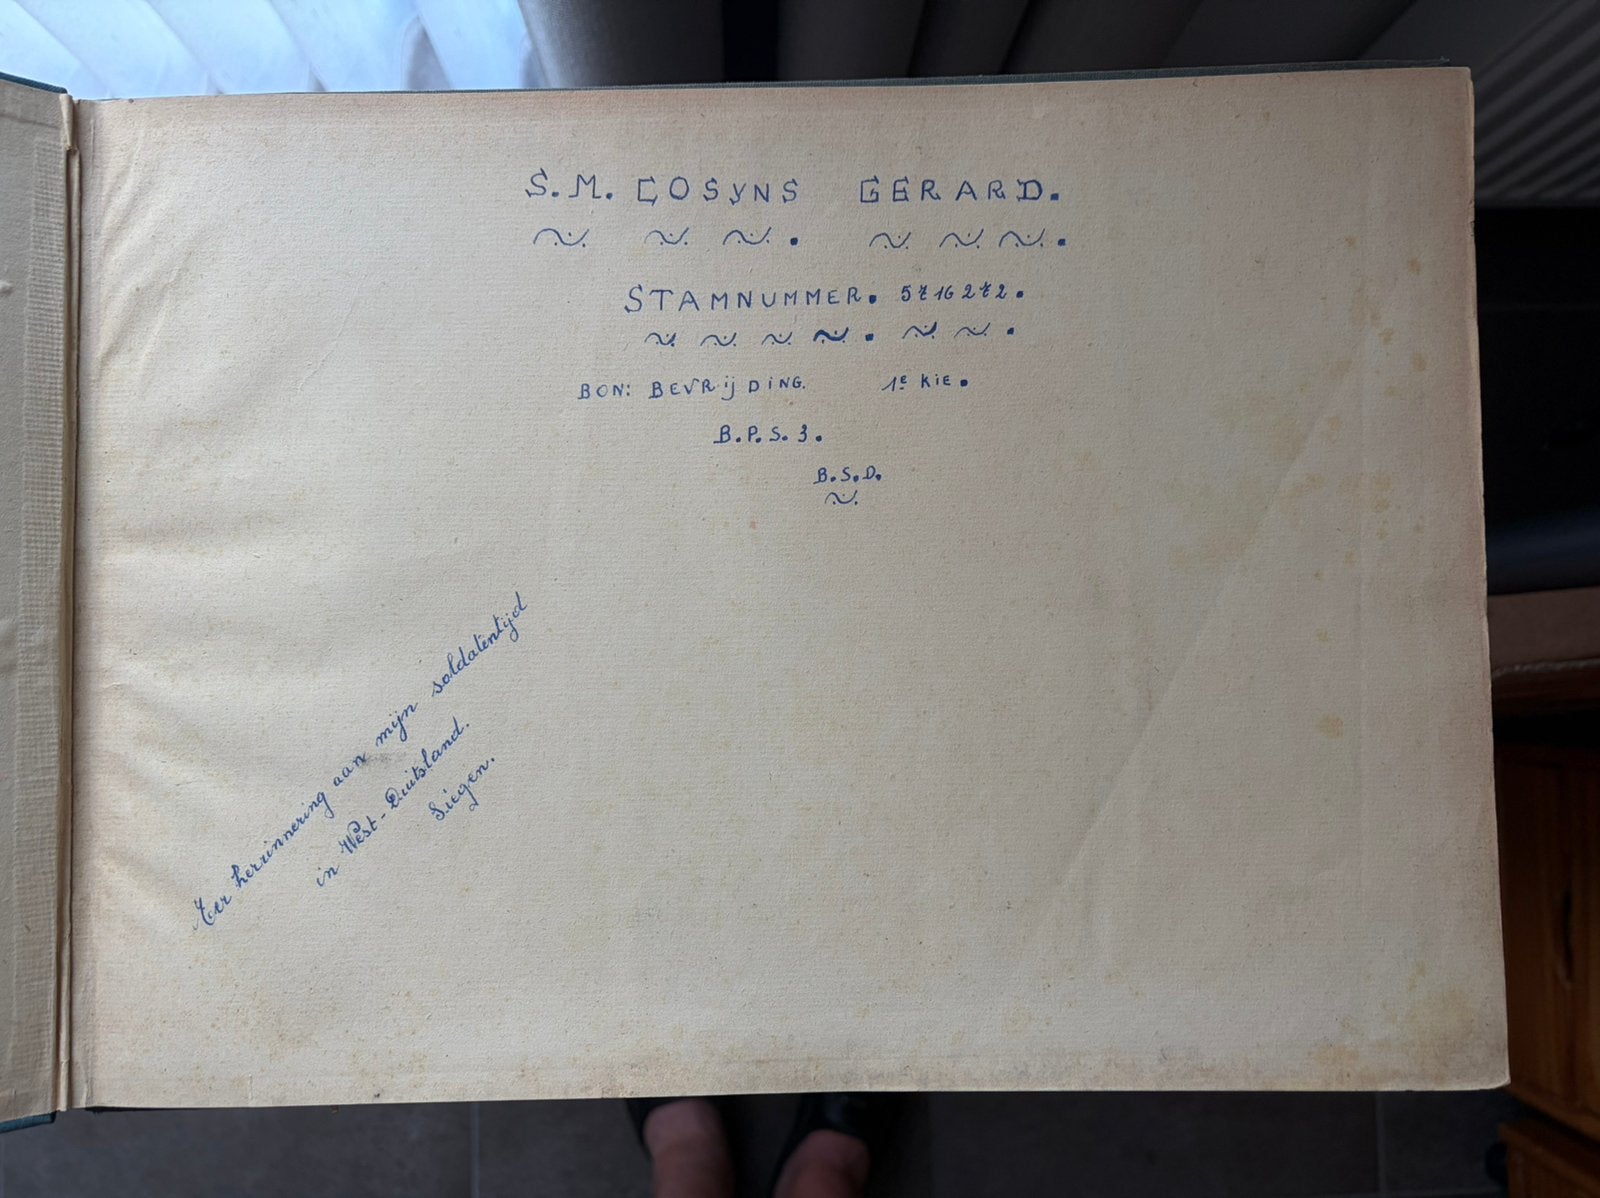 S.M. COSYNS GERARD.
STAMNUMMER. 5716272.
BON: BEVRijDiNG. 1e KiE.
B.P.S. 3.
B.S.D.
Ter herrinnering aan mijn soldatentijd
in West-Duitsland.
Siegen.